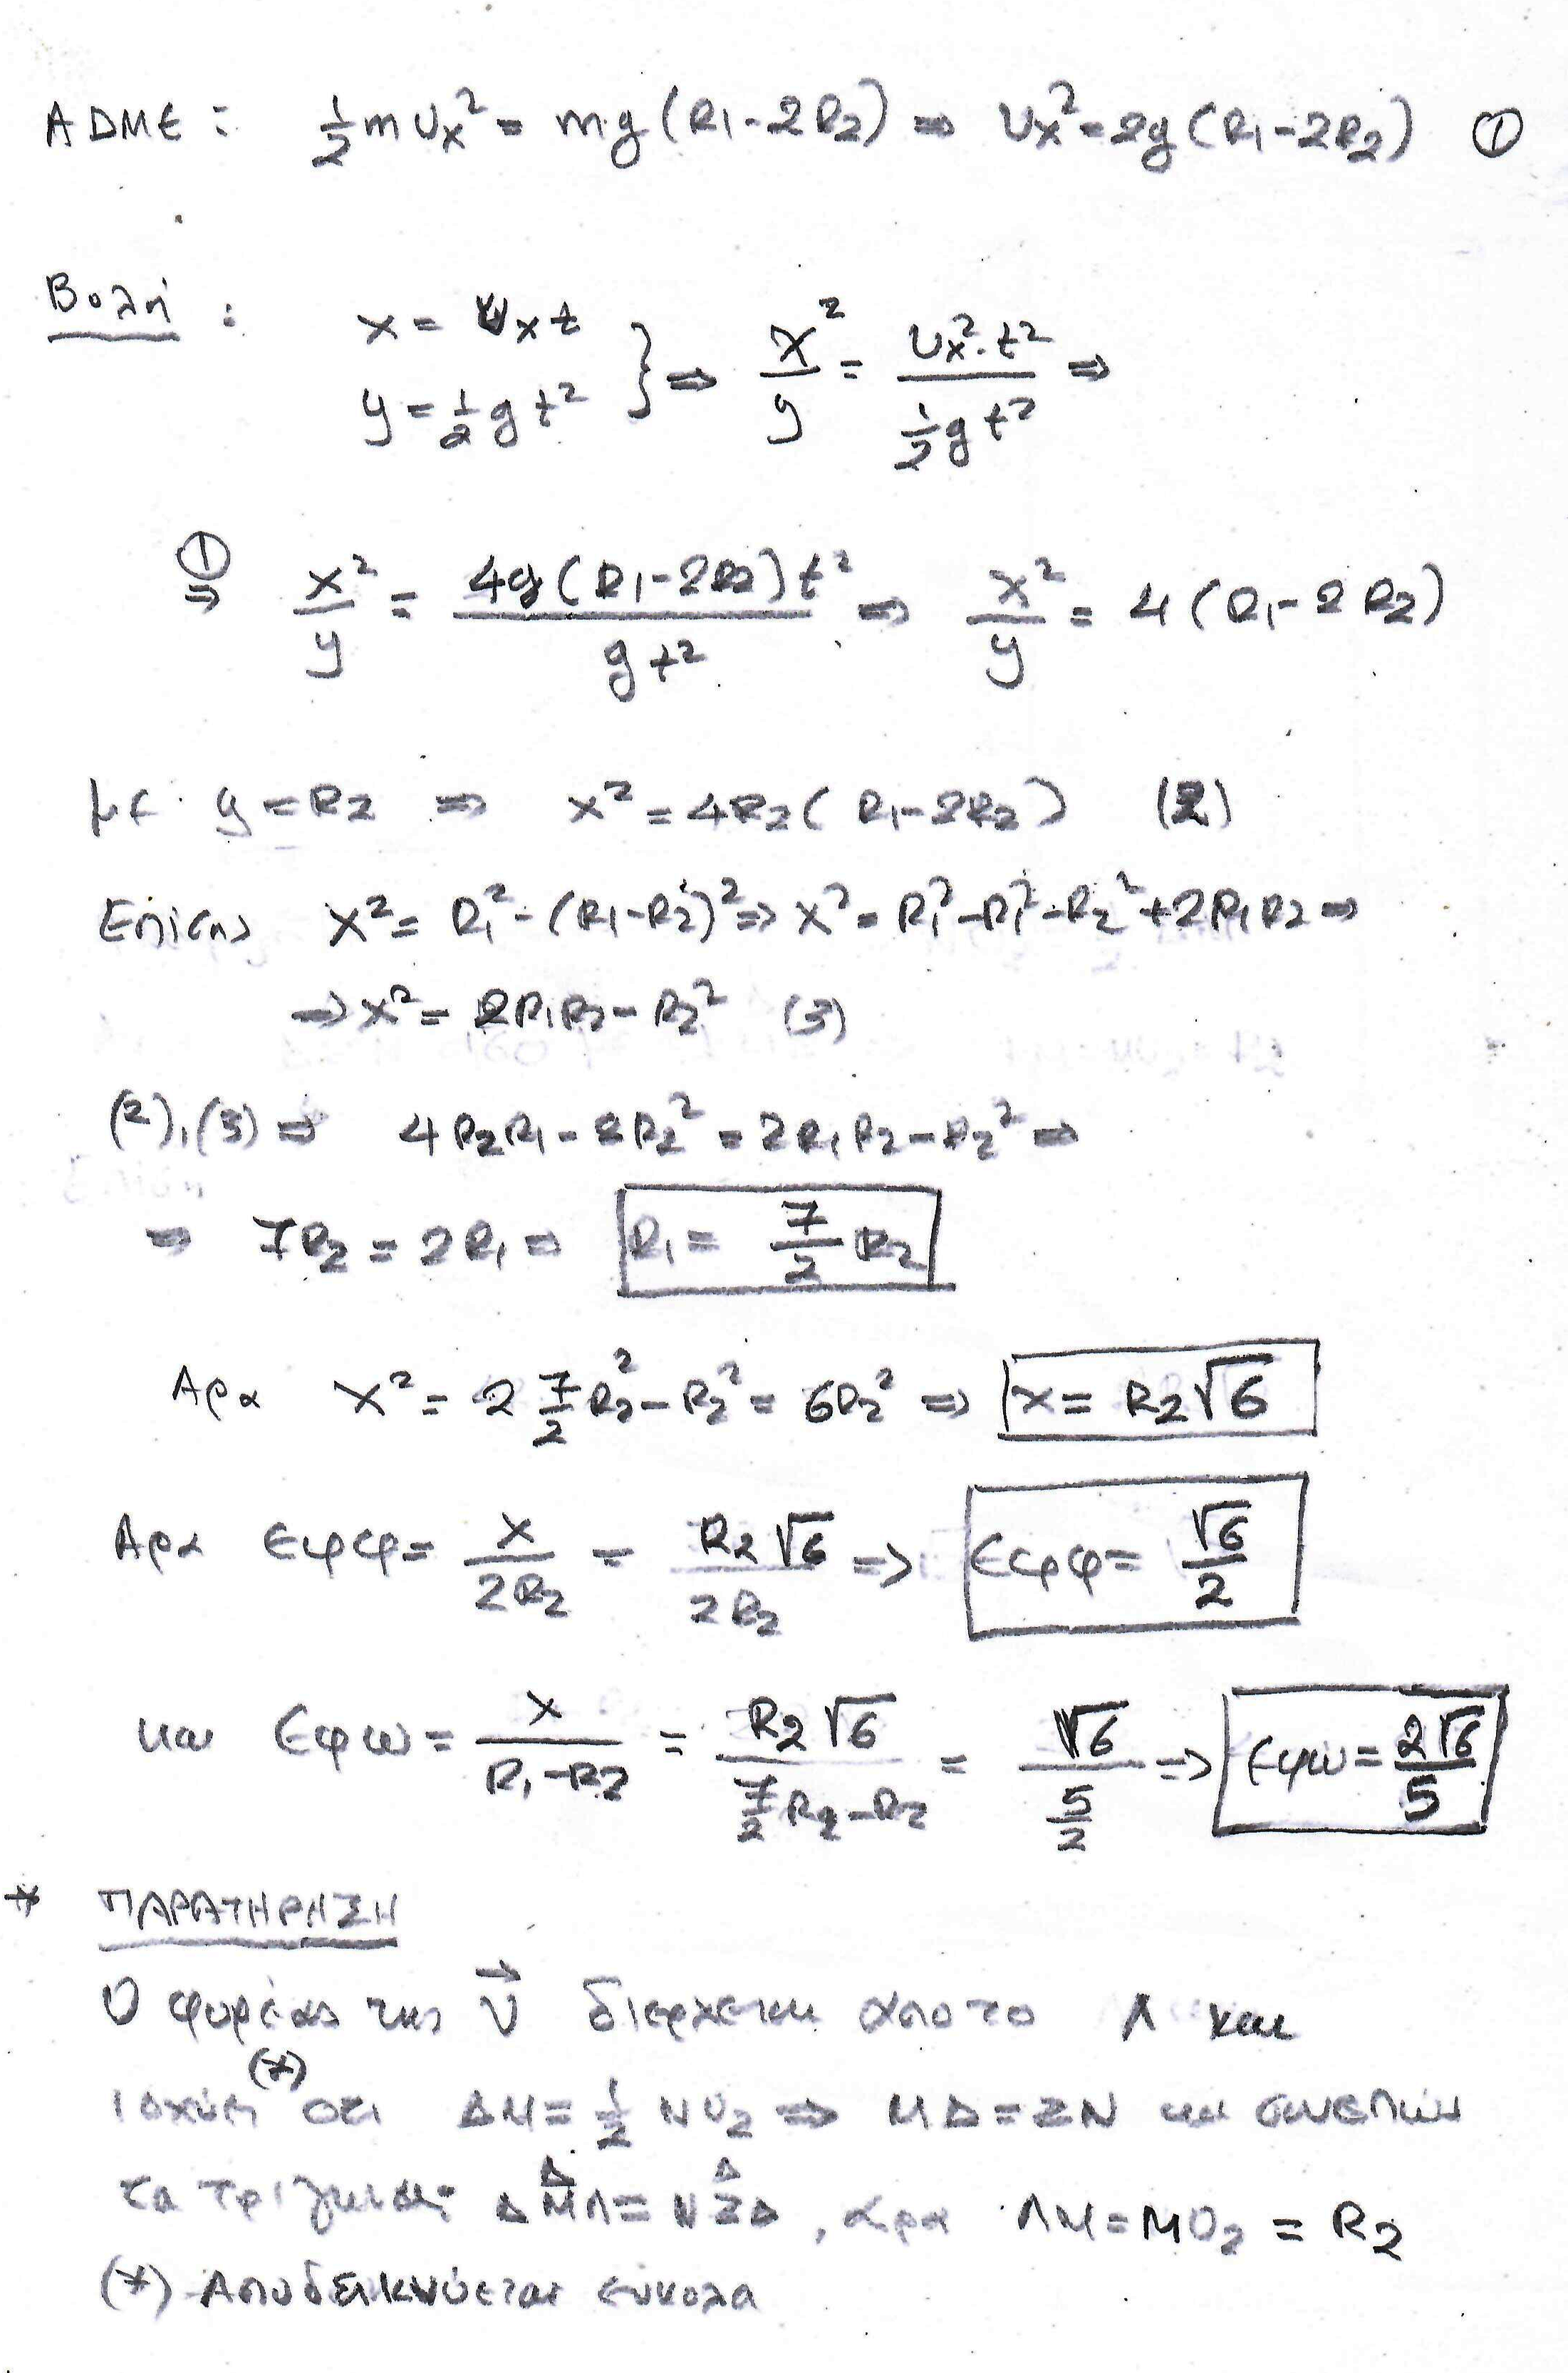 ΑΔΜΕ : ½mυx² = mg(R1-2R2) ⇒ υx²=2g(R1-2R2) ①
Βολή :
x = υxt
y=½gt² } ⇒ x²/y = υx²·t² / ½gt² ⇒
①⇒ x²/y = 4g(R1-2R2)t² / gt² ⇒ x²/y = 4(R1-2R2)
με y=R2 ⇒ x²=4R2(R1-2R2) (2)
Επίσης x²= R1²-(R1-R2)² ⇒ x²= R1²-R1²-R2²+2R1R2 ⇒
⇒ x²= 2R1R2-R2² (3)
(2),(3) ⇒ 4R2R1-8R2²=2R1R2-R2² ⇒
⇒ 7R2=2R1 ⇒ R1= 7/2 R2
Αρα x²= 2 7/2 R2²-R2²= 6R2² ⇒ x= R2√6
Αρα εφφ= x/2R2 = R2√6/2R2 ⇒ εφφ= √6/2
και εφω= x/R1-R2 = R2√6 / 7/2R2-R2 = √6 / 5/2 ⇒ εφω= 2√6/5
* ΠΑΡΑΤΗΡΗΣΗ
Ο φορέας της υ⃗ διερχεται απο το Λ και
ισχύει(*) οτι ΔΜ= ½ ΝΟ2 ⇒ ΜΔ=ΖΝ και συνεπώς
τα τρίγωνα ΔΜΛ=ΝΖΔ, αρα ΛΜ=ΜΟ2 = R2
(*) Αποδεικνύεται ευκολα